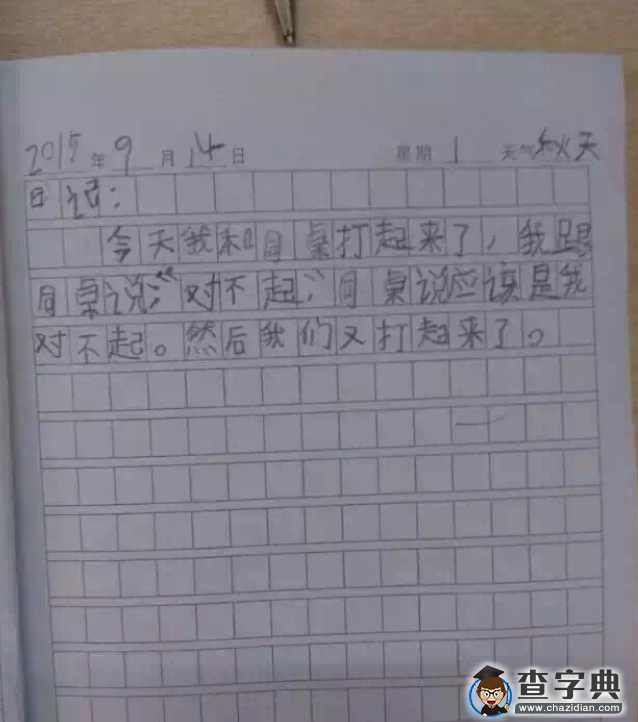 2015年9月14日 星期1 天气秋天
日记：
今天我和同桌打起来了，我跟
同桌说：“对不起”，同桌说应该是我
对不起。然后我们又打起来了。
查字典
www.chazidian.com